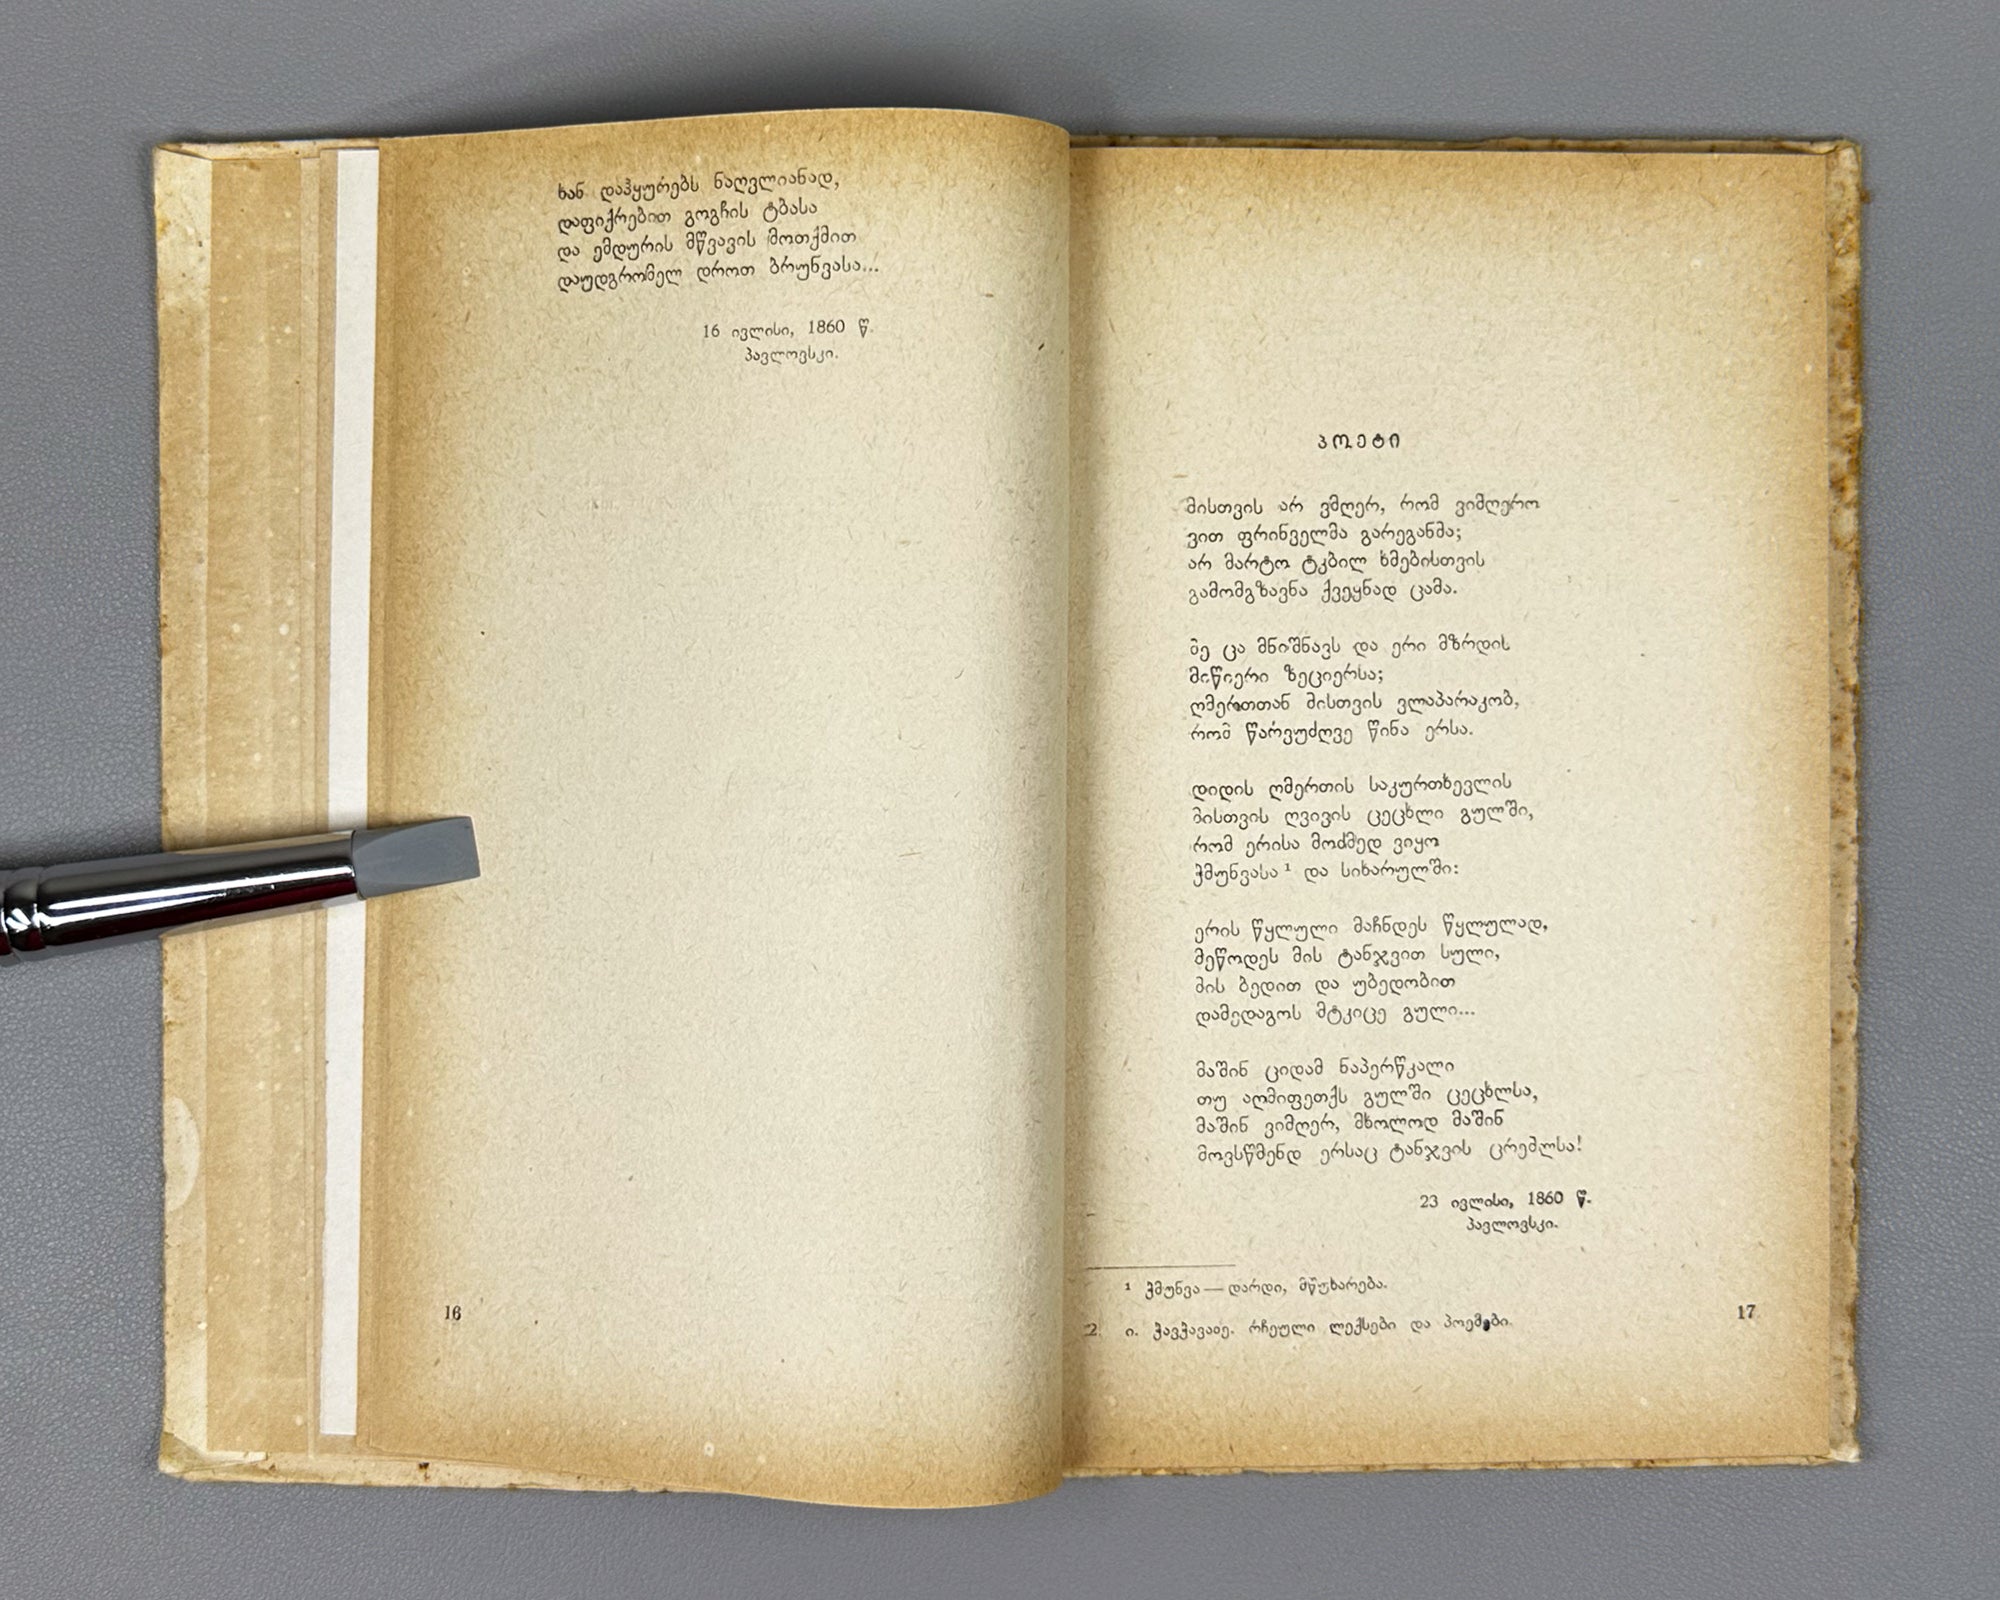 ხან დაჰყურებს ნაღვლიანად,
დაფიქრებით გოგჩის ტბასა
და ემდურის მწვავის მოთქმით
დაუდგრომელ დროთ ბრუნვასა...
16 ივლისი, 1860 წ.
პავლოვსკი.
16
პოეტი
მისთვის არ ვმღერ, რომ ვიმღერო
ვით ფრინველმა გარეგანმა;
არ მარტო ტკბილ ხმებისთვის
გამომგზავნა ქვეყნად ცამა.
მე ცა მნიშნავს და ერი მზრდის
მიწიერი ზეციერსა;
ღმერთთან მისთვის ვლაპარაკობ,
რომ წარვუძღვე წინა ერსა.
დიდის ღმერთის საკურთხევლის
მისთვის ღვივის ცეცხლი გულში,
რომ ერისა მოძმედ ვიყო
ჭმუნვასა¹ და სიხარულში:
ერის წყლული მაჩნდეს წყლულად,
მეწოდეს მის ტანჯვით სული,
მის ბედით და უბედობით
დამედაგოს მტკიცე გული...
მაშინ ციდამ ნაპერწკალი
თუ აღმიფეთქს გულში ცეცხლსა,
მაშინ ვიმღერ, მხოლოდ მაშინ
მოვსწმენდ ერსაც ტანჯვის ცრემლსა!
23 ივლისი, 1860 წ.
პავლოვსკი.
¹ ჭმუნვა — დარდი, მწუხარება.
2. ი. ჭავჭავაძე. რჩეული ლექსები და პოემები.
17